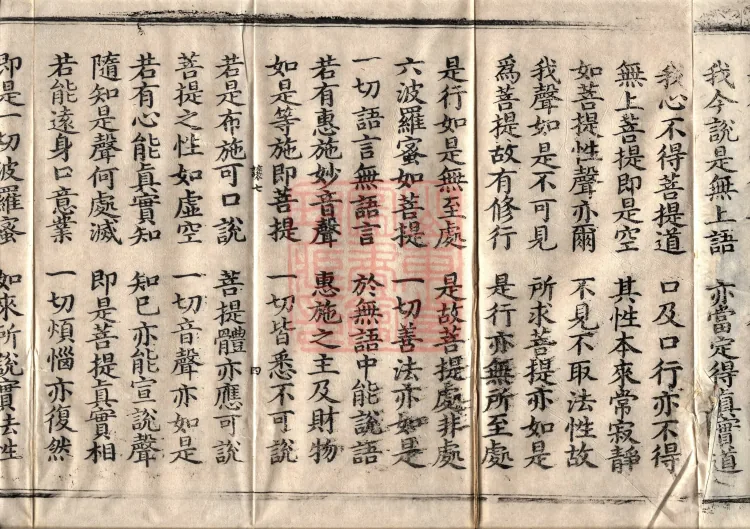 我今說是無上語　亦當定得真實道
我心不得菩提道　口及口行亦不得
無上菩提即是空　其性本來常寂靜
如菩提性聲亦爾　不見不取法性故
我聲如是不可見　所求菩提亦如是
爲菩提故有修行　是行亦無所至處
是行如是無至處　是故菩提處非處
六波羅蜜如菩提　一切善法亦如是
一切語言無語言　於無語中能說語
若有惠施妙音聲　惠施之主及財物
如是等施即菩提　一切皆悉不可說
四
若是布施可口說　菩提體亦應可說
菩提之性如虛空　一切音聲亦如是
若有心能真實知　知已亦能宣說聲
隨知是聲何處滅　即是菩提真實相
若能遠身口意業　一切煩惱亦復然
即是一切波羅蜜　如來所說實法性